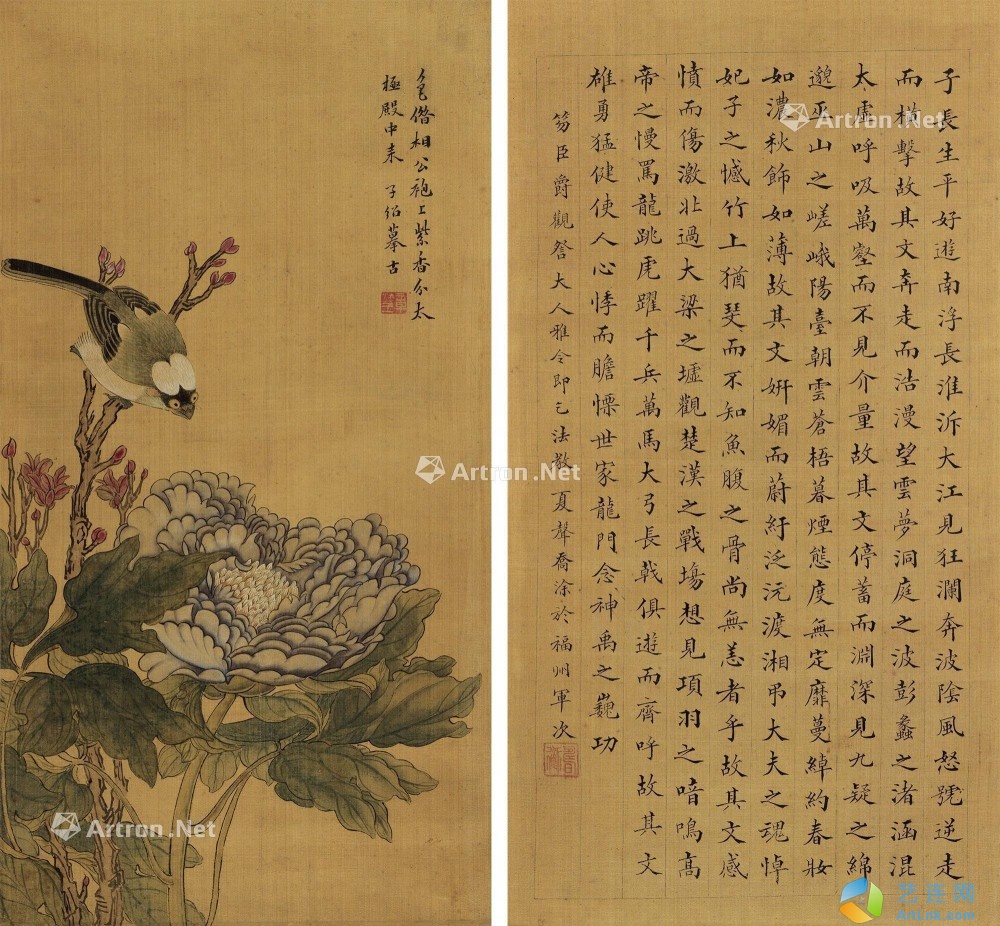 色僭相公袍上紫香分太
極殿中来 子紹摹古
子長生平好遊南浮長淮泝大江見狂瀾奔波陰風怒號逆走
而橫擊故其文奔走而浩漫望雲夢洞庭之波彭蠡之渚涵混
太虛呼吸萬壑而不見介量故其文停蓄而淵深見九疑之綿
邈巫山之嵯峨陽臺朝雲蒼梧暮煙態度無定靡蔓綽約春妝
如濃秋飾如薄故其文妍媚而蔚紆泛沅渡湘弔大夫之魂悼
妃子之憾竹上猶斐而不知魚腹之骨尚無恙者乎故其文感
憤而傷激北過大梁之墟觀楚漢之戰場想見項羽之喑嗚高
帝之慢罵龍跳虎躍千兵萬馬大弓長戟俱遊而齊呼故其文
雄勇猛健使人心悸而膽慄世家龍門念神禹之巍功
芴臣爵觀詧大人雅令即乞法教 夏聲喬涂於福州軍次
Artron.Net
Artron.Net
Artron.Net
Artron.Net
艺连网
ArtLnk.com